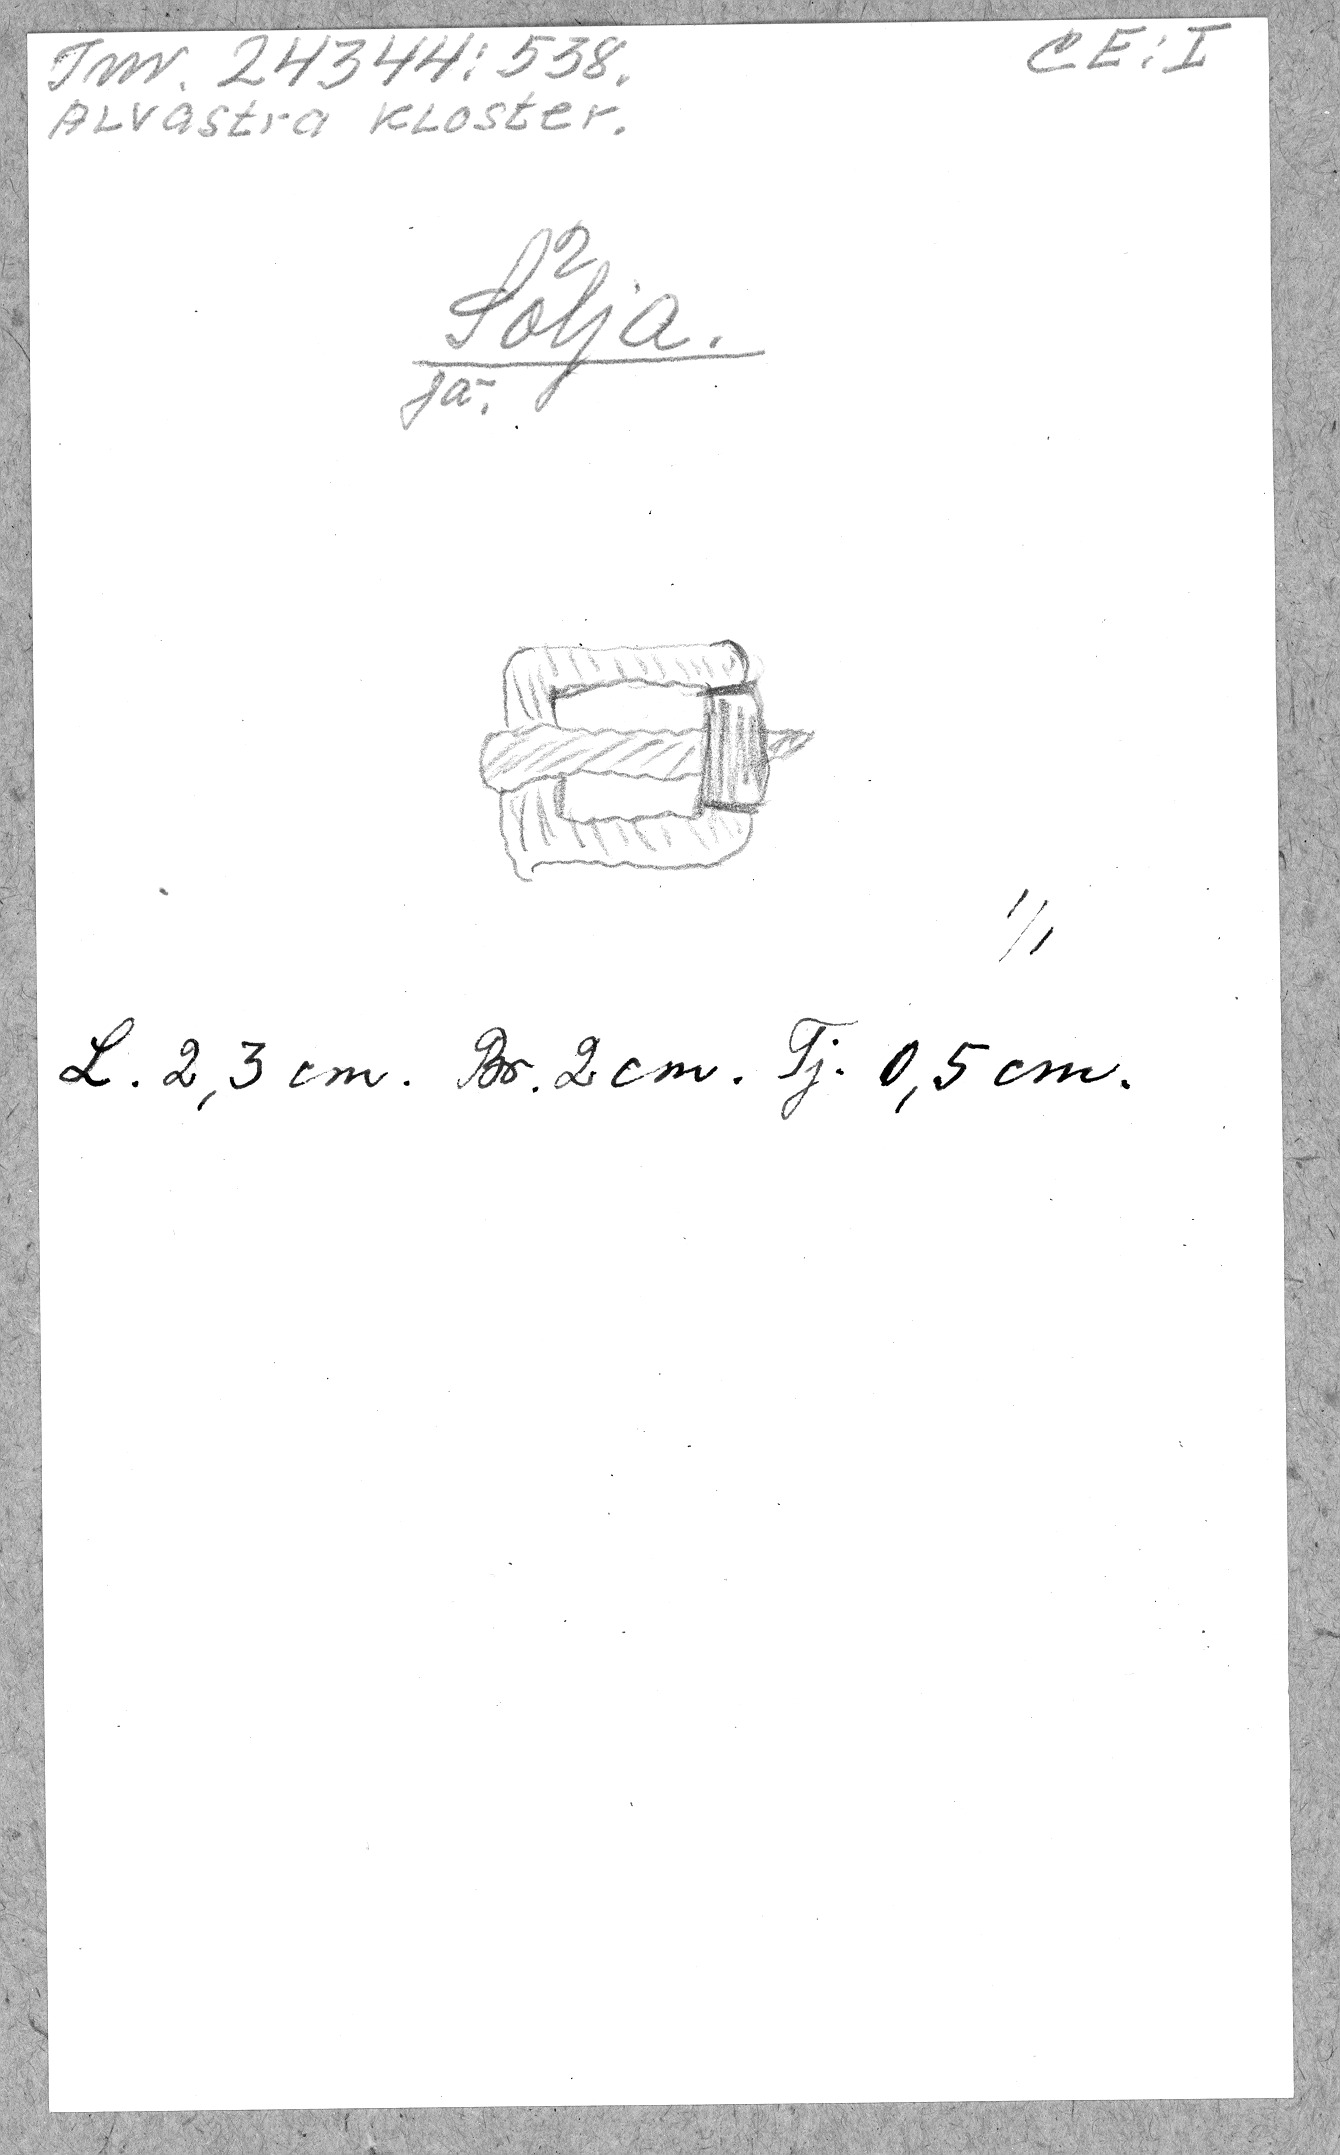 Inv. 24344:538.
CE:I
ALVastra KLoster.
Sölja.
ja.
1/1
L. 2,3 cm. Br. 2 cm. Tj. 0,5 cm.